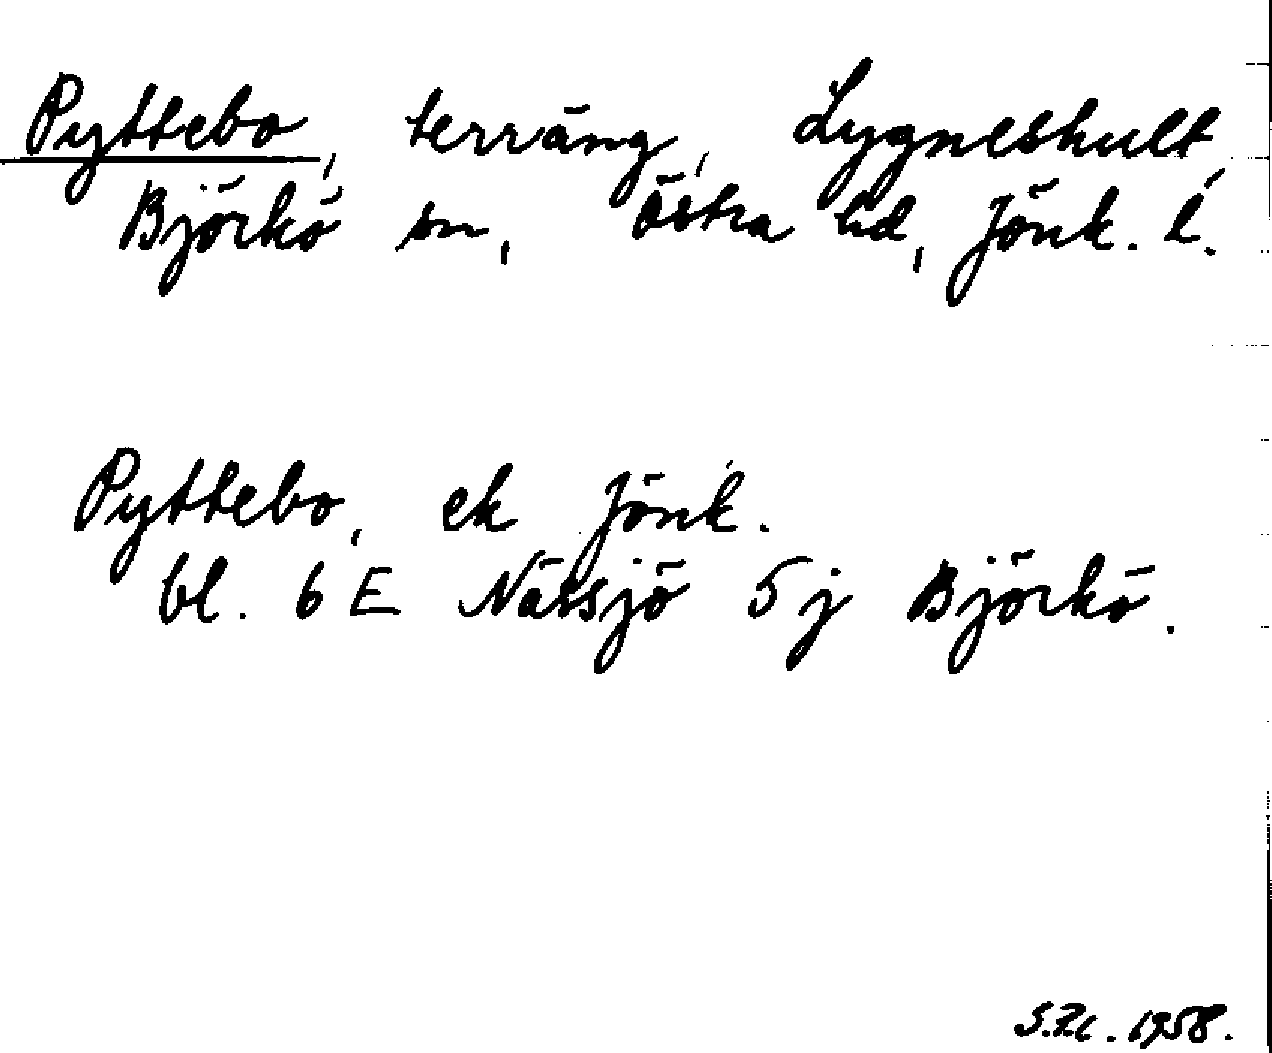 Pyttebo, terräng, Lygneshult,
Björkö sn, Östra hd, Jönk. l.
Pyttebo, ek Jönk.
bl. 6 E Nässjö 5 j Björkö.
1958.